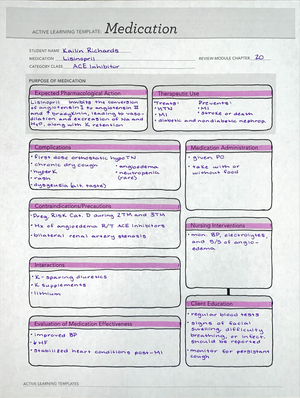 ACTIVE LEARNING TEMPLATE: Medication
STUDENT NAME Kailin Richards
MEDICATION Lisinopril
REVIEW MODULE CHAPTER 20
CATEGORY CLASS ACE Inhibitor
PURPOSE OF MEDICATION
Expected Pharmacological Action
Lisinopril inhibits the conversion
of angiotensin I to angiotensin II
and ↑ bradykinin, leading to vaso-
dilation and excretion of Na and
H₂O, along with K retention
Therapeutic Use
Treats: Prevents:
• HTN • MI
• MI • stroke or death
• diabetic and nondiabetic nephrop.
Complications
• First dose orthostatic hypoTN
• chronic dry cough • angioedema
• hyperK • neutropenia
• rash (rare)
• dysgeusia (alt taste)
Medication Administration
• given PO
• take with or
without food
Contraindications/Precautions
• Preg. Risk Cat. D during 2TM and 3TM
• Hx of angioedema R/T ACE inhibitors
• bilateral renal artery stenosis
Nursing Interventions
• mon. BP, electrolytes
and S/S of angio-
edema
Interactions
• K-sparing diuretics
• K supplements
• lithium
Client Education
• regular blood tests
• signs of facial
swelling, difficulty
breathing, or infect.
should be reported
• monitor for persistant
cough
Evaluation of Medication Effectiveness
• improved BP
• ↓ HF
• stabilized heart conditions post-MI
ACTIVE LEARNING TEMPLATES